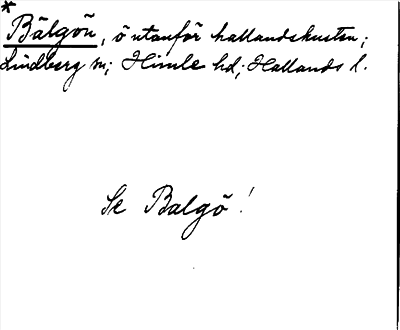 * Bälgön, ö utanför hallandskusten;
Lindberg sn; Himle hd; Hallands l.
Se Balgö!